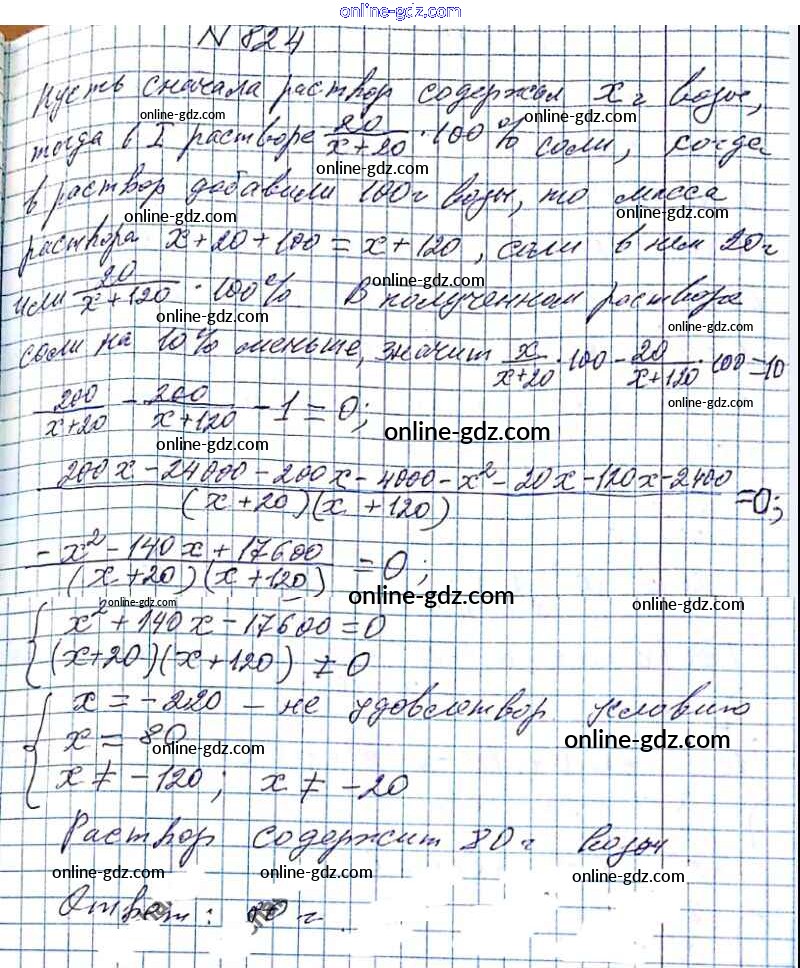 online-gdz.com
N 824
Пусть сначала раствор содержал x г воды,
online-gdz.com online-gdz.com
тогда в I растворе 20/(x+20) · 100% соли, когда
online-gdz.com
в раствор добавили 100г воды, то масса
online-gdz.com online-gdz.com
раствора x+20+100 = x+120, соли в нем 20г
online-gdz.com
или 20/(x+120) · 100% В полученном растворе
online-gdz.com online-gdz.com
соли на 10% меньше, значит x/(x+20) · 100 - 20/(x+120) · 100 = 10
online-gdz.com
200/(x+20) - 200/(x+120) - 1 = 0;
online-gdz.com online-gdz.com
(200x - 24000 - 200x - 4000 - x² - 20x - 120x - 2400)/((x+20)(x+120)) = 0;
(-x² - 140x + 17600)/((x+20)(x+120)) = 0;
online-gdz.com online-gdz.com online-gdz.com
{ x² + 140x - 17600 = 0
(x+20)(x+120) ≠ 0
{ x = -220 - не удовлетвор условию
x = 80
online-gdz.com online-gdz.com
x ≠ -120; x ≠ -20
Раствор содержит 80 г воды
online-gdz.com online-gdz.com
Ответ: 80 г.